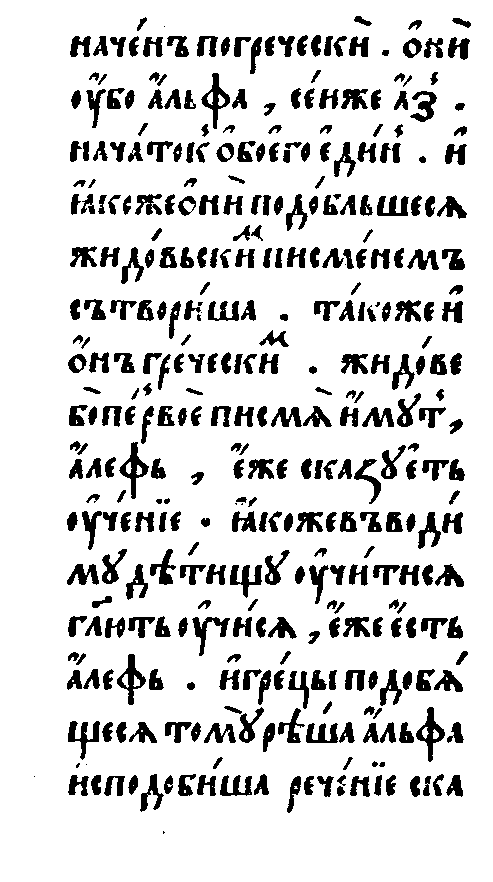 наче́нъ погречески̏ . о̑ни̏
ᲂу҆́бо а҆́льфа , се́нже а҆́зъ .
нача́токъ о҆бое́го е҆ди́нъ . и҆
ꙗ҆́коже о҆ни̏ подо́бльшеся
жидо́вьскиⷨ писме́немъ
сътвори́ша . та́коже и҆
о҆́нъ гре́ческиⷨ . жидо́ве
бо̀ пе́рвое писмѧ̀ и҆́мутъ ,
а҆́лефь , е҆́же сказуеть
ᲂу҆че́нїе . ꙗ҆́коже въводи́
мꙋ дѣ́тищꙋ ᲂу҆чи́тисѧ
гл҃ють ᲂу҆чи́сѧ , е҆́же е҆́сть
а҆́лефь . и҆ гре́цы подобѧ́
щесѧ томꙋ̀ рѣ́ша а҆́льфа
и҆сподоби́ша рече́нїе ска